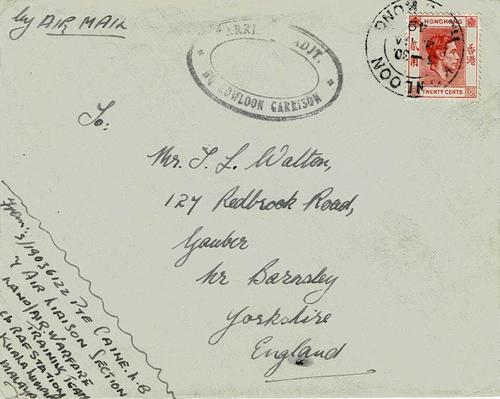 by AIR MAIL
GARRISON ADJT.
HQ KOWLOON GARRISON
KOWLOON
HONG KONG
HONGKONG
香港
TWENTY CENTS
To:
Mr. T. L. Walton,
127 Redbrook Road,
Gauber
Nr Barnsley
Yorkshire
England
From: S/19036122 PTE CAINE. L. B
4 AIR LIAISON SECTION
LAND/AIR WARFARE
TRAINING TEAM
c/o RAF STATION
KUALA LUMPUR
MALAYA